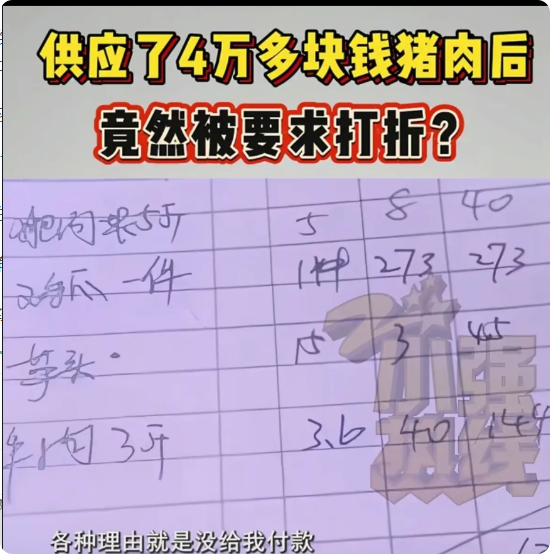 供应了4万多块钱猪肉后
竟然被要求打折？
肥肉 5斤 5 8 40
鸡爪一件 1件 273 273
芋头 15 3 45
牛肉3斤 3.6 40 144
小强热线
各种理由就是没给我付款